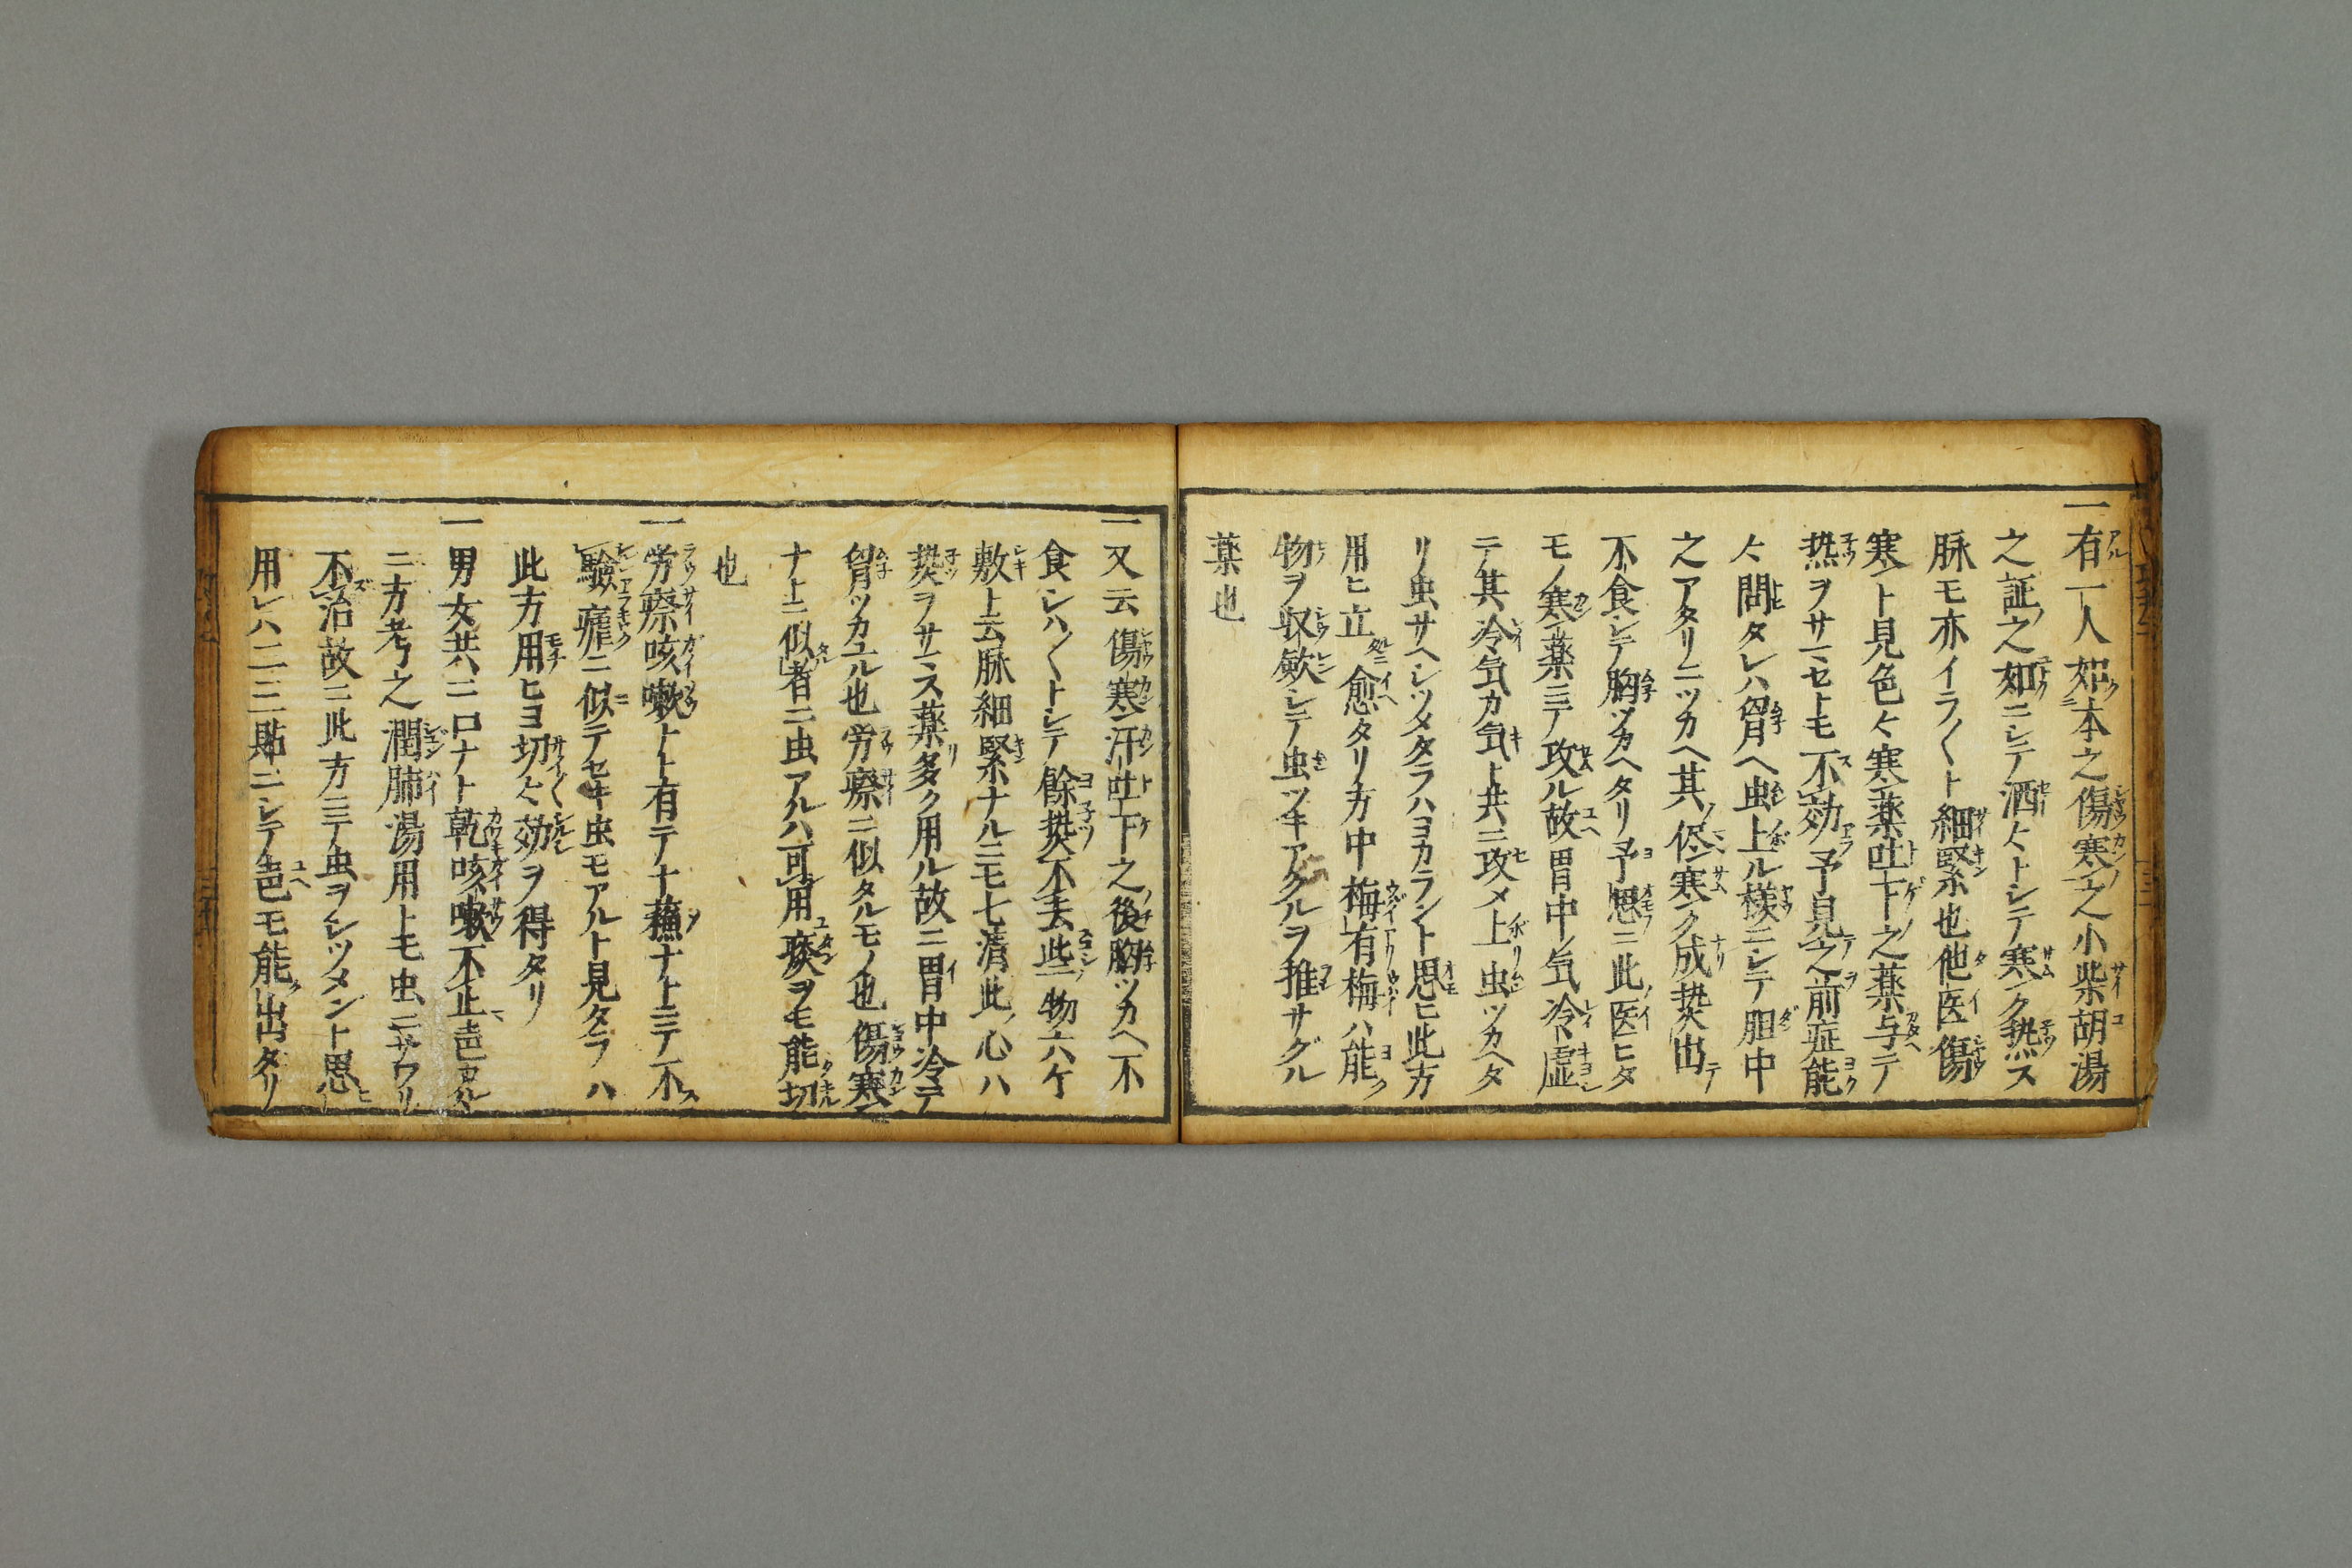 一有一人如本之傷寒之小柴胡湯
之証之如ニシテ洒々トシテ寒ク熱ス
脉モ亦イライラト細緊也他医傷
寒ト見色々寒薬吐下之薬与テ
熱ヲサマセトモ不効予見之前症能
々問タレハ胷ヘ虫上ル様ニシテ胆中
之アタリニツカヘ其侭寒ク成𤍠出
不食シテ胸ツカヘタリ予思ニ此医ヒタ
モノ寒薬ニテ攻ル故胃中ノ気冷虚
テ其冷気カ気ト共ニ攻メ上虫ツカヘタ
リ虫サヘシツメタラハヨカラント思ヒ此方
用ヒ立処ニ愈タリ方中梅有梅ハ能
物ヲ収斂シテ虫ツキアクルヲ推サグル
薬也
一又云傷寒汗吐下之後胸ツカヘ不
食シハ〱トシテ餘𤍠不去些ノ物六ケ
敷ト云脉細緊ナルニモ七清此ノ心ハ
𤍠ヲサマス薬多ク用ル故ニ胃中冷ヨテ
胷ツカユル也労瘵ニ似タルモノ也傷寒
ナトニ似者ニ虫アルハ可用痰ヲモ能切
也
一労瘵咳嗽ト有テナ蘓ナトニテ不
驗瘧ニ似テセキ虫モアルト見タラハ
此方用ヒヨ切々効ヲ得タリ
一男女共ニ口ナト乾咳嗽不止
ニ方考之潤肺湯用トモ虫ニサワリ
不治故ニ此方ニテ虫ヲシツメント思
用レハ二三貼ニシテ色モ能出タリ